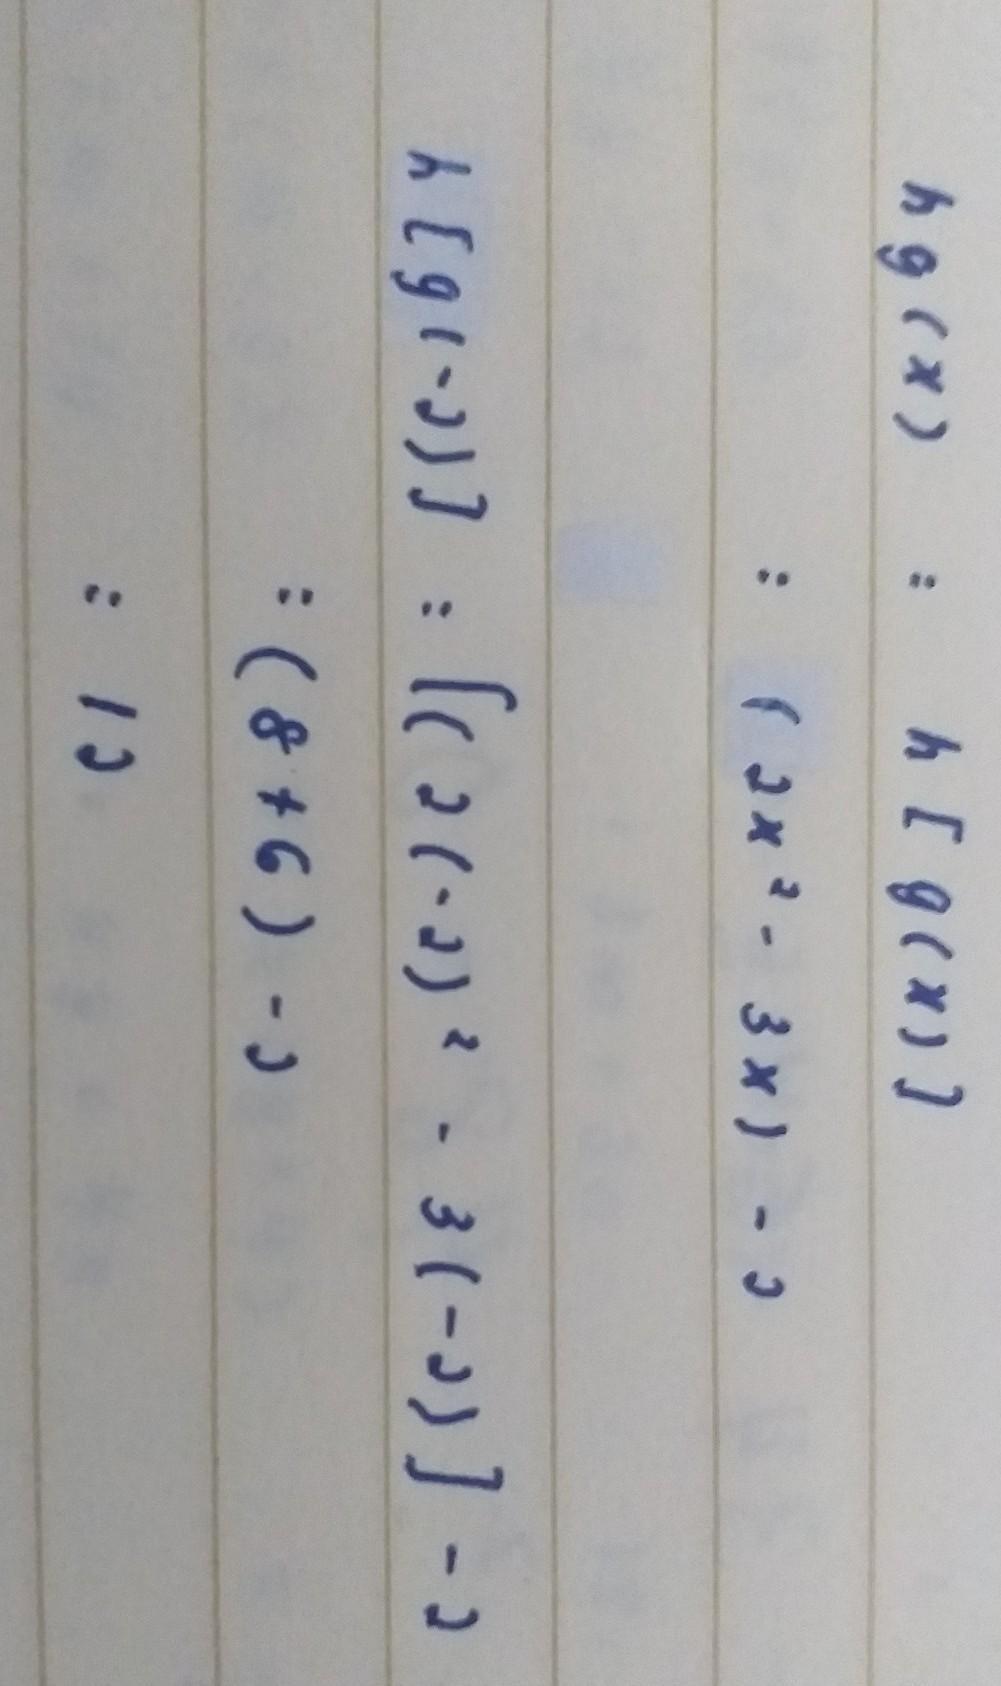 hg(x) = h[g(x)]
= (2x² - 3x) - 2
h[g(-2)] = [(2(-2)² - 3(-2)] - 2
= (8+6) - 2
= 12